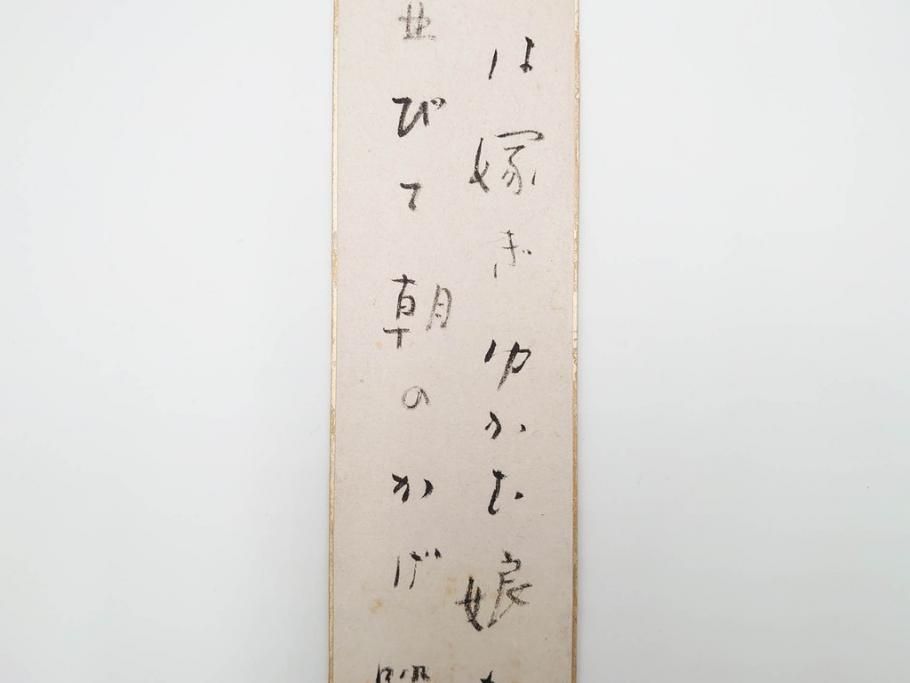 は嫁ぎゆかむ娘
並びて朝のかげ